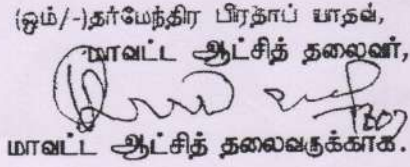 (ஒம்/-)தர்மேந்திர பிரதாப் யாதவ்,
மாவட்ட ஆட்சித் தலைவர்,
மாவட்ட ஆட்சித் தலைவருக்காக.